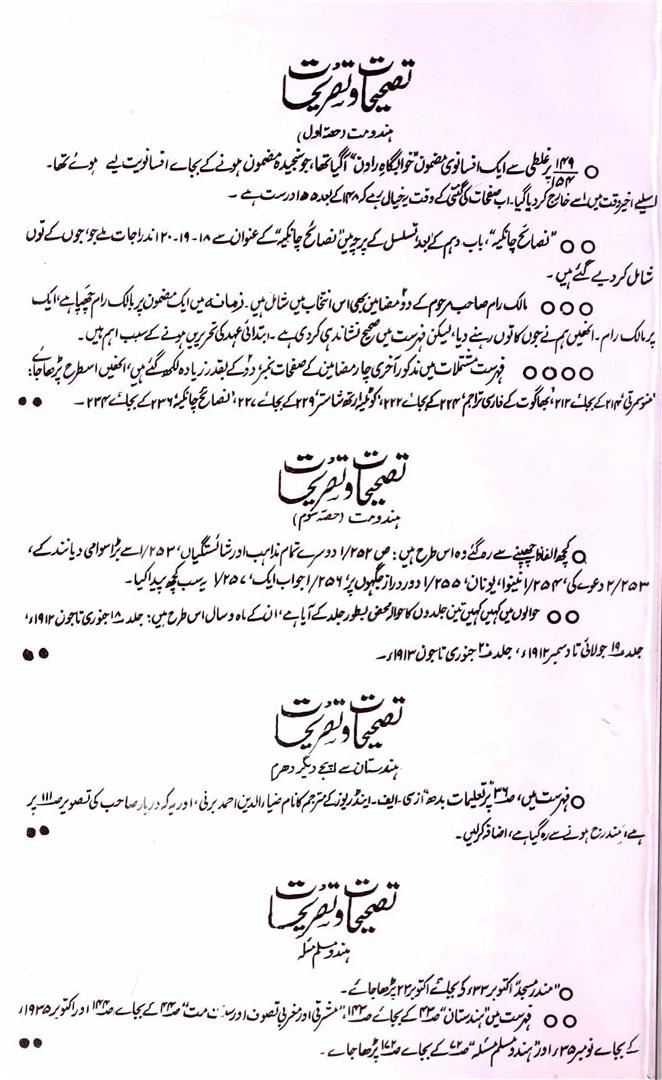 تصحیحات و تصریحات
ہندومت (حصّہ اول)
○ ۱۴۹/۱۵۴ پر غلطی سے ایک افسانوی مضمون "خوابگاہِ راون" آگیا تھا، جو سنجیدہ مضمون ہونے کے بجائے افسانویت لیے ہوئے تھا۔
اسلیے اخیر وقت میں اسے خارج کر دیا گیا۔ اب صفحات کی گنتی کے وقت یہ خیال رہے کہ ۱۴۸ کے بعد ۱۵۵ درست ہے۔
○○ "نصائح چانکیہ"، باب دہم کے بعد تسلسل کے پرچوں میں "نصائح چانکیہ" کے عنوان سے ۱۸-۱۹-۱۲۰ اندراجات ملے جو، جوں کے توں
شامل کر دیے گئے ہیں۔
○○○ مالک رام صاحب مرحوم کے دو مضامین بھی اس انتخاب میں شامل ہیں۔ زمانہ میں ایک مضمون پر مالک رام چھپا ہے، ایک
پر مالک رام۔ انھیں ہم نے جوں کا توں رہنے دیا، لیکن فہرست میں صحیح نشاندہی کر دی ہے۔ ابتدائی عہد کی تحریریں ہونے کے سبب اہم ہیں۔
○○○○ فہرست مشتملات میں مذکور آخری چار مضامین کے صفحات نمبر دو دو کے بقدر زیادہ لکھ گئے ہیں، انھیں اسطرح پڑھا جائے:
'منوسمرتی' ۲۱۴ کے بجائے ۲۱۲، 'بھاگوت کے فارسی تراجم' ۲۲۴ کے بجائے ۲۲۲، 'کوٹلیہ ارتھ شاستر' ۲۲۹ کے بجائے ۲۲۷، 'نصائح چانکیہ' ۲۳۶ کے بجائے ۲۳۴۔ ●●
تصحیحات و تصریحات
ہندومت (حصّہ سوم)
○ کچھ الفاظ چھپنے سے رہ گئے وہ اس طرح ہیں: ص ۱/۲۵۲ دوسرے تمام مذاہب اور شائستگیاں، ۱/۲۵۳ اسے بڑا سوامی دیانند کے،
۲/۲۵۳ دعوے کی، ۱/۲۵۴ نینوا، یونان، ۱/۲۵۵ دور دراز جگہوں پر، ۱/۲۵۶ جواب ایک، ۱/۲۵۷ یہ سب کچھ پیدا کیا۔
○○ حوالوں میں کہیں کہیں تین جلدوں کا حوالہ محض بطور جلد کے آیا ہے، ان کے ماہ و سال اس طرح ہیں: جلد ۱۸ جنوری تا جون ۱۹۱۲ء،
جلد ۱۹ جولائی تا دسمبر ۱۹۱۲ء، جلد ۲۰ جنوری تا جون ۱۹۱۳ء۔ ●●
تصحیحات و تصریحات
ہندستان سے اپجے دیگر دھرم
○ فہرست میں، ص ۳۶ پر تعلیمات بدھ "از سی۔ ایف۔ اینڈریوز کے مترجم کا نام ضیاء الدین احمد برنی، اور یہ کہ دربار صاحب کی تصویر ص ۱۱۱ پر
ہے، مندرج ہونے سے رہ گیا ہے، اضافہ کر لیں۔ ●●
تصحیحات و تصریحات
ہندو مسلم مسئلہ
○ "مندر مسجد" اکتوبر ۳۳ء کو بجائے اکتوبر ۲۲ پڑھا جائے۔
○○ فہرست میں "ہندستان" ص ۴۳ کے بجائے ص ۱۴۲، "مشرقی اور مغربی تصوف اور سنت مت" ص ۴۴ کے بجائے ص ۱۴۴ اور اکتوبر ۱۹۳۵ء
کے بجائے نومبر ۳۵ء، اور "ہندو مسلم مسئلہ" ص ۷۲ کے بجائے ص ۱۷۲ پڑھا جائے۔ ●●